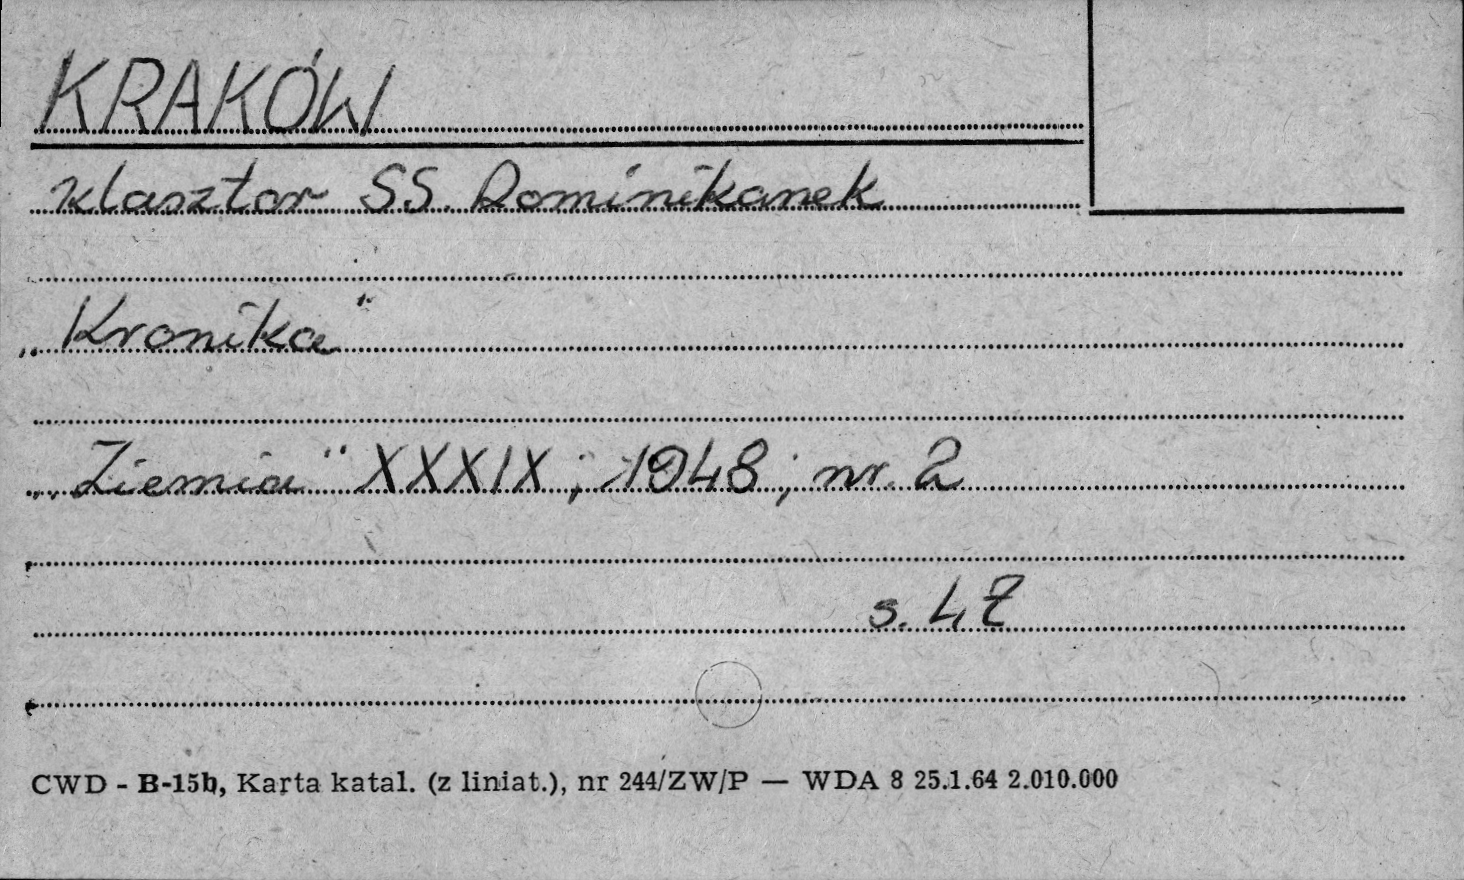 KRAKÓW
klasztor SS. Dominikanek
„Kronika"
„Ziemia" XXXIX; 1948; nr. 2
s. 47
CWD - B-15b, Karta katal. (z liniat.), nr 244/ZW/P — WDA 8 25.1.64 2.010.000